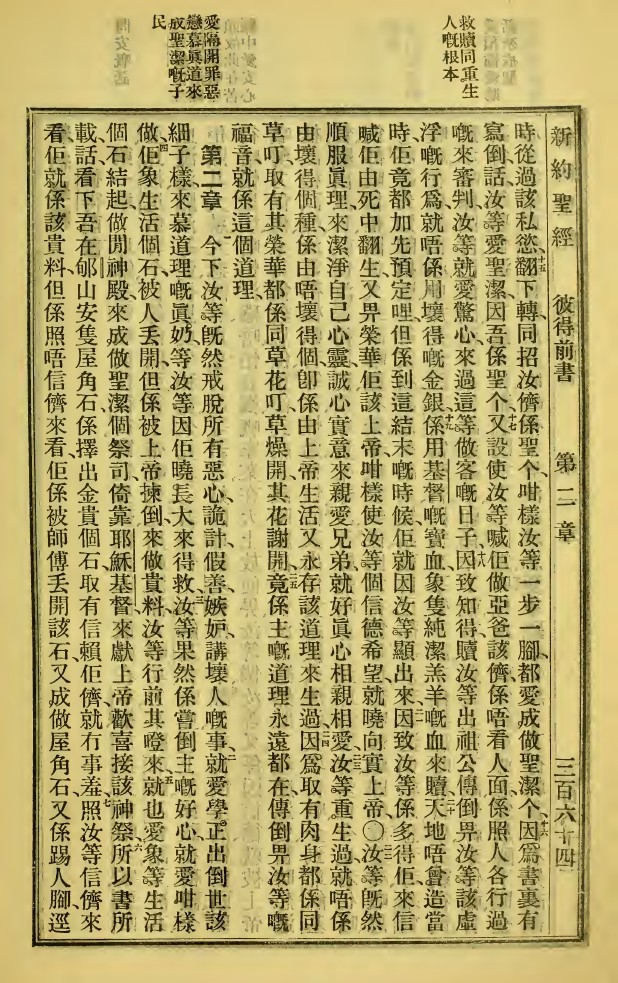 救贖同重生
人嘅根本
愛隔開罪惡
戀慕眞道來
成聖潔嘅子
民
新約聖經 彼得前書 第二章 三百六十四
時從過該私慾翻下轉、十五同招汝儕係聖个、咁樣汝等一步一腳、都愛成做聖潔个、十六因爲書裏有
寫倒話、汝等愛聖潔、因吾係聖个、十七又設使汝等喊佢做亞爸、該儕係唔看人面、係照人各行過
嘅來審判、汝等就愛驚心來過這等做客嘅日子、十八因致知得贖汝等出祖公傳倒畀汝等該虛
浮嘅行爲、就唔係用壞得嘅金銀、十九係用基督嘅寶血、象隻純潔羔羊嘅血來贖、二十天地唔曾造當
時、佢竟都加先預定哩、但係到這結末嘅時候、佢就因汝等顯出來、二一因致汝等係多得佢來信
喊佢由死中翻生、又畀榮華佢該上帝、咁樣使汝等個信德希望就曉向實上帝〇二二汝等旣然
順服眞理來潔淨自己心靈、誠心實意來親愛兄弟、就好眞心相親相愛、二三汝等重生過、就唔係
由壞得個種、係由唔壞得個、卽係由上帝生活又永存該道理來生過、二四因爲取有肉身都係同
草叮、取有其榮華都係同草花叮、草燥開、其花謝開、二五竟係主嘅道理永遠都在、傳倒畀汝等嘅
福音就係這個道理、
第二章 一今下汝等旣然戒脫所有惡心、詭計、假善、嫉妒、講壞人嘅事、二就愛學正出倒世該
細子樣、來慕道理嘅眞奶、等汝等因佢曉長大來得救、三汝等果然係嘗倒主嘅好心、就愛咁樣
做、四佢象生活個石、被人丟開、但係被上帝揀倒來做貴料、汝等行前其嶝來、五就也愛象等生活
個石結起、做閒神殿、來成做聖潔個祭司、倚靠耶穌基督來獻上帝歡喜接該神祭、六所以書所
載話、看下吾在郇山安隻屋角石、係擇出金貴個石、取有信賴佢儕就冇事羞、七照汝等信儕來
看、佢就係該貴料、但係照唔信儕來看、佢係被師傅丟開該石、又成做屋角石、又係踢人腳逕